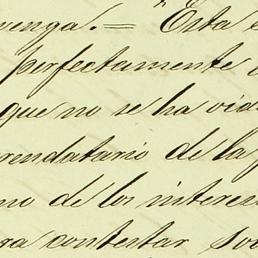 venga. = Esta
perfectamente
que no se ha
rendatario de la
no de los interes
ra contestar so